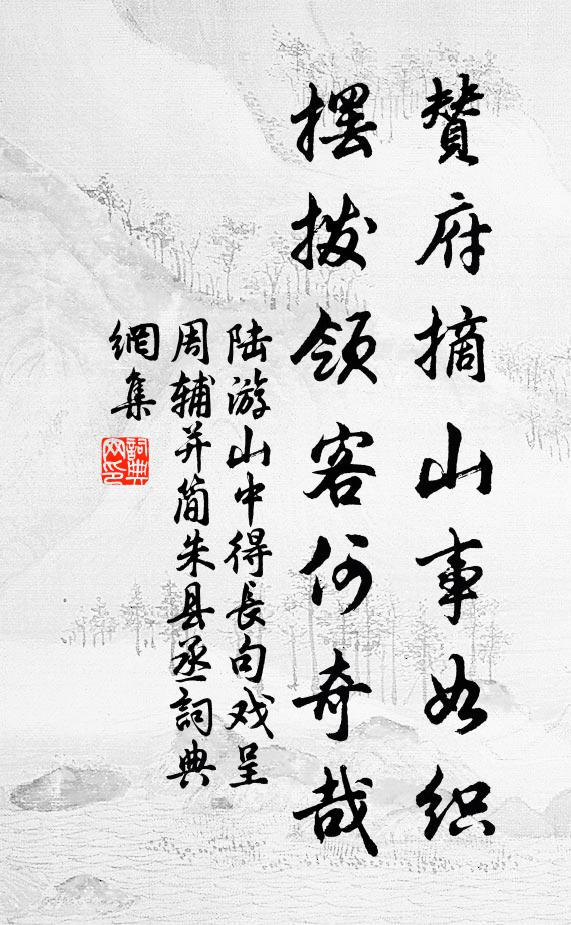 賛府摘山事如织
摆拨领客何奇哉
陆游山中得長句戏呈
周辅并简朱县丞詞典
網集
詞典網印